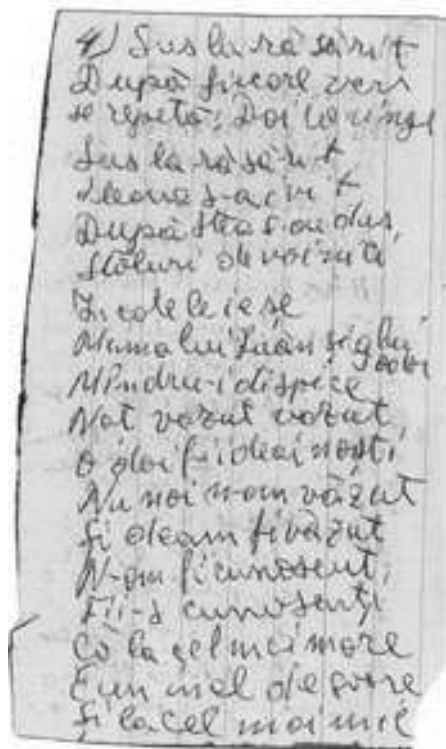 4) Sus la răsărit
După fiecare vers
se repetă: Doi co
Sus la răsărit
s-a ivit
După stea s-au dus,
Stoluri de voinici
În cale le iese
Muma lui
Mîndru-i
N-aț văzut văzut
O doi fii deai noști
Nu noi n-am văzut
Și deam fi văzut
N-am fi cunoscut,
Fii-s cunoscuți
Că la cel mai mare
E un inel de soare
Și la cel mai mic